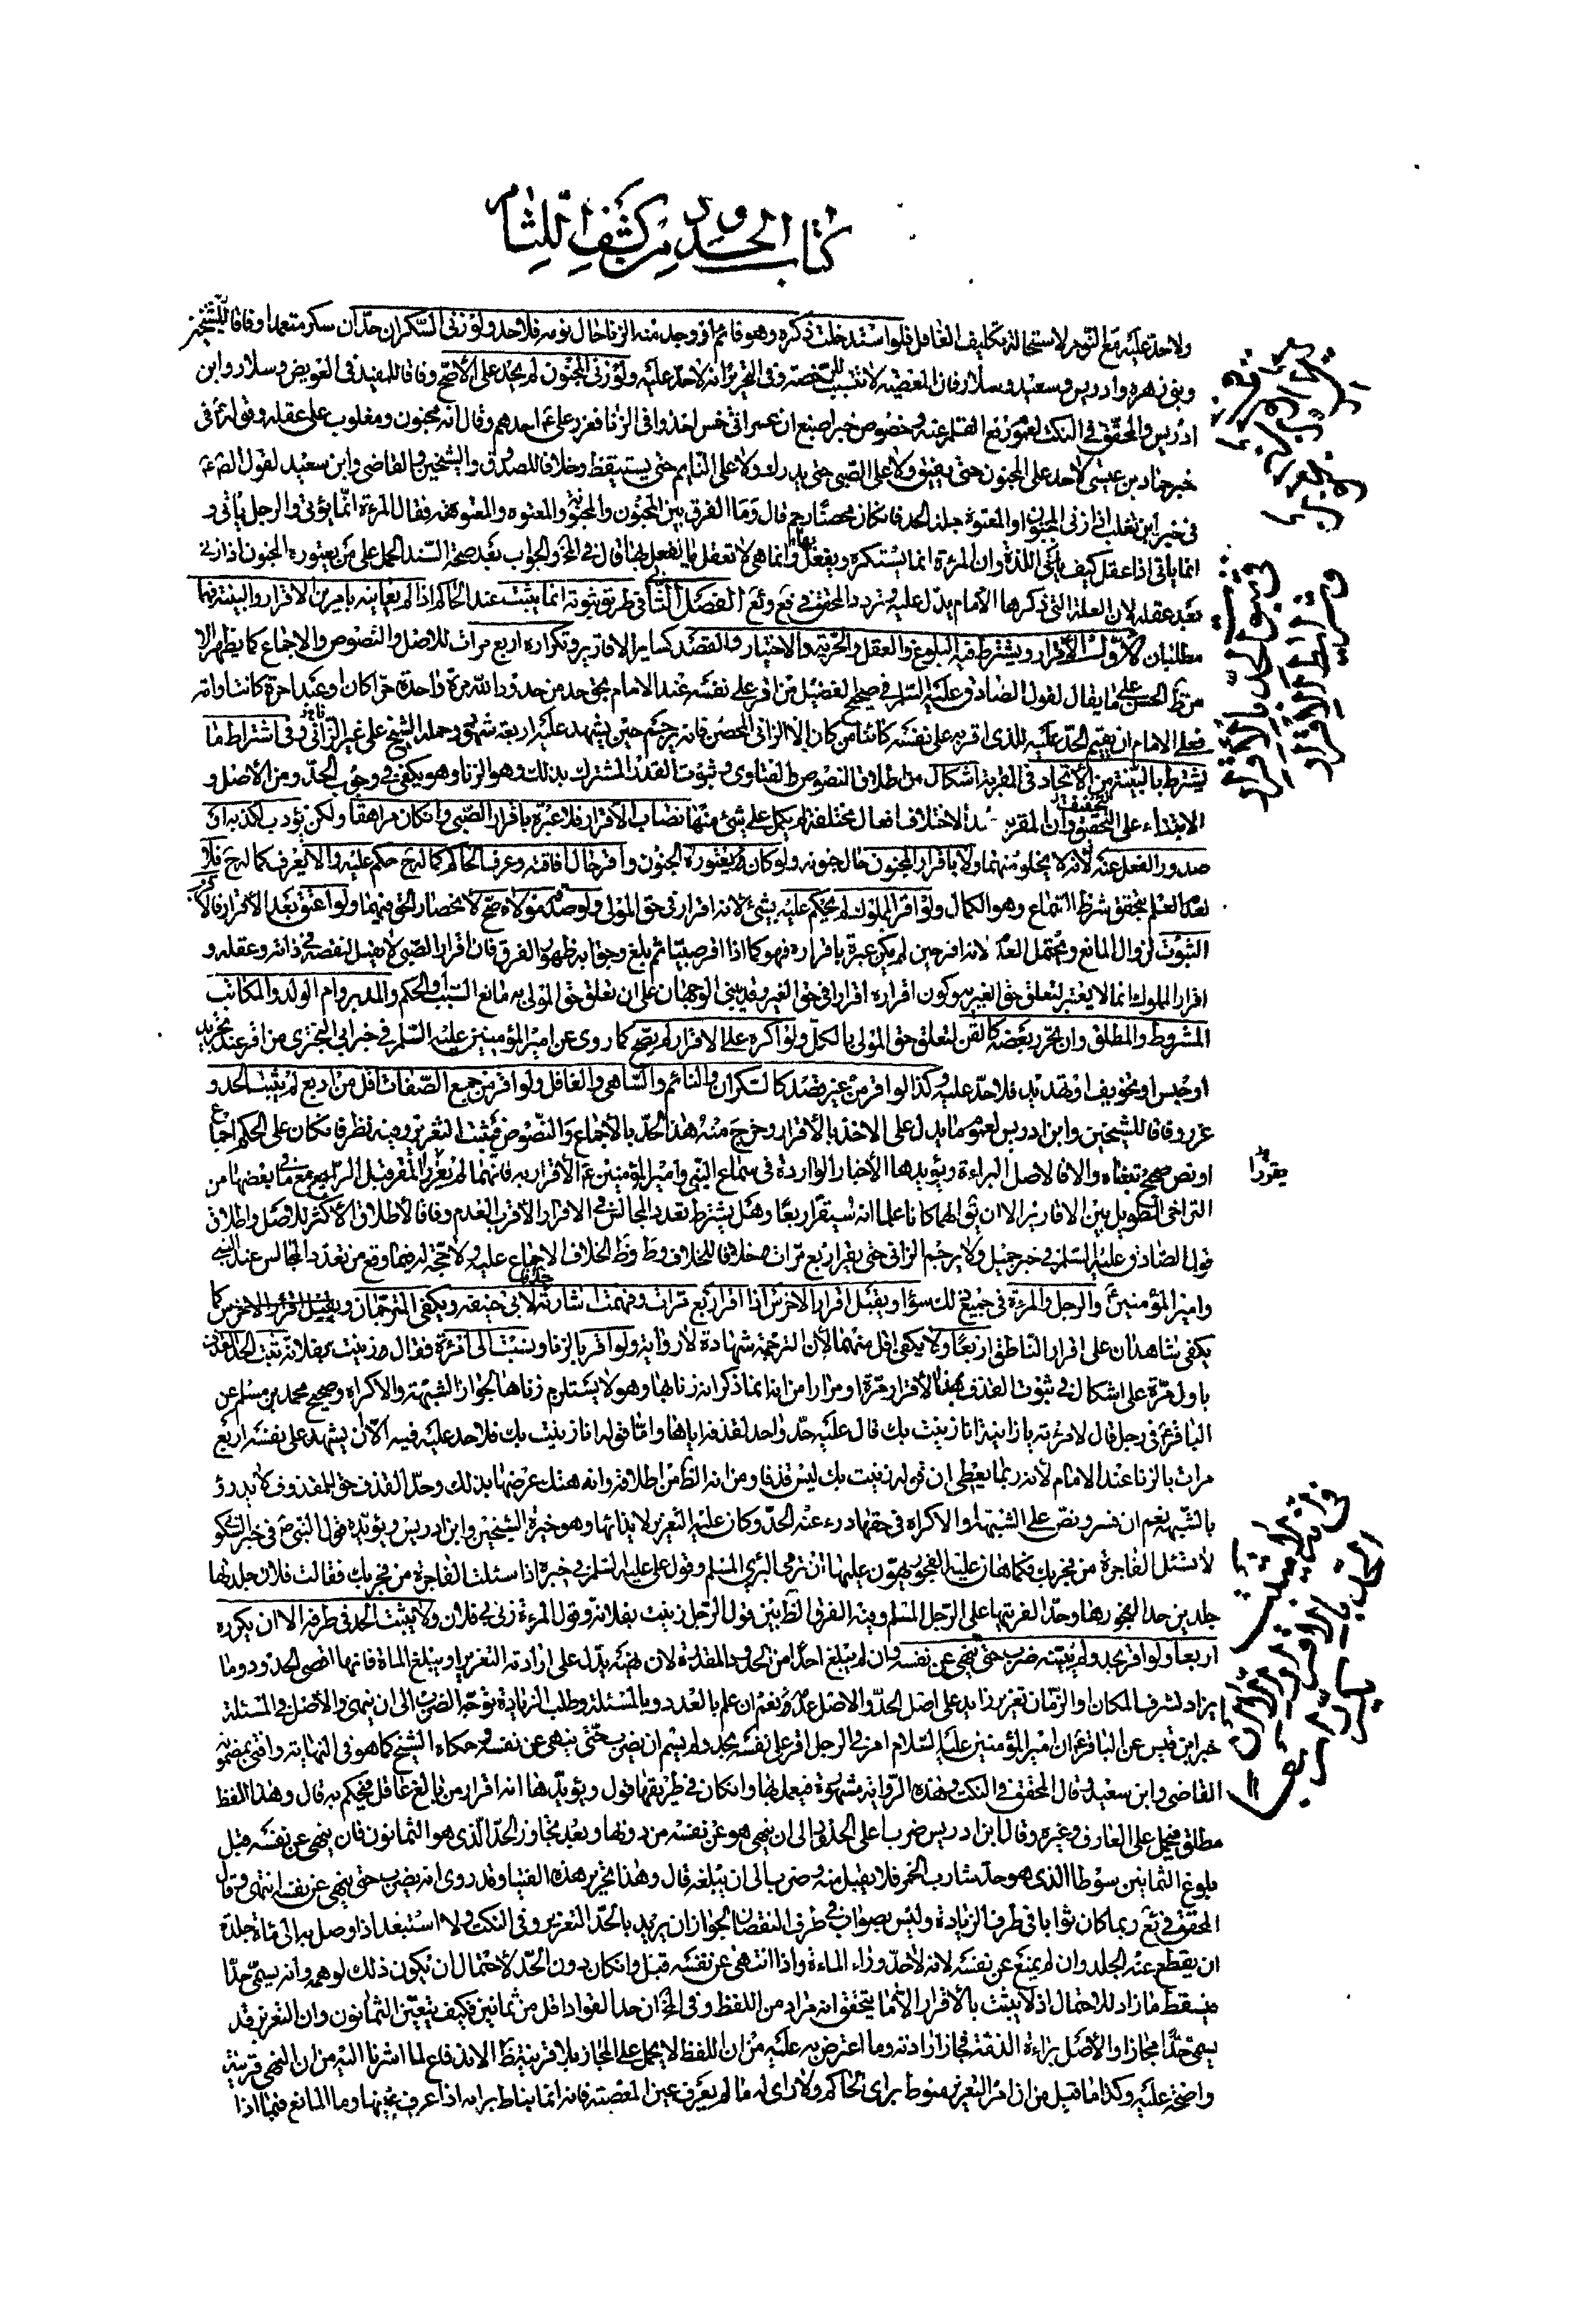 كتاب الحدود من كشف اللثام
ولا حد عليه مع النوم لاستحالة تكليف الغافل فلو استدخلت ذكره وهو نائم او وجد منه الزنا حال نومه فلا حد ولو زنى السكران حد ان سكر متعمدا وفاقا للشيخين
وبنى زهره وادريس وسعيد وسلار فان المعصية لا تسبب للرخصة وفى التحرير انه لا حد عليه ولو زنى المجنون لم يحد على الأصح وفاقا للمفيد فى العويص وسلار وابن
ادريس والمحقق فى النكت لعموم رفع القلم عنه وخصوص خبر اصبغ ان عمر اتى خمس اخذوا فى الزنا فعزر على ع احدهم وقال انه مجنون ومغلوب على عقله وقوله ع فى
خبر حماد بن عيسى لا حد على المجنون حتى يفيق ولا على الصبى حتى يدرك ولا على النايم حتى يستيقظ وخلافا للصدوق والشيخين والقاضى وابن سعيد لقول الصادق ع
فى خبر ابن تغلب اذا زنى المجنون او المعتوه جلد الحد فان كان محصنا رجم قال وما الفرق بين المجنون والمجنونة والمعتوه والمعتوهة فقال المرءة انما يؤتى والرجل ياتى و
انما ياتى اذا عقل كيف ياتى اللذة وان المرءة انما يستكره ويفعل بها وانما هى لا تعقل ما يفعل بها قال فى المخ والجواب بعد صحة السند الحمل على من يعتوره الجنون اذا زنى
بعد عقله لان العلة التى ذكرها الامام يدل عليه وتردد المحقق فى فع وئع الفصل الثانى طريق ثبوته انما يثبت عند الحاكم اذا لم يعاينه بامرين الاقرار والبينة فهنا
مطلبان الاول الاقرار ويشترط فيه البلوغ والعقل والحرية والاختيار والقصد كساير الاقارير وتكراره اربع مرات للاصل والنصوص والاجماع كما يظهر الا
من ظ الحسن على ما يقال لقول الصادق عليه السلم فى صحيح الفضيل من اقر على نفسه عند الامام بحق حد من حدود الله مرة واحدة حرا كان او عبدا حرة كانت او امة
فعلى الامام ان يقيم الحد عليه للذى اقر به على نفسه كائنا من كان الا الزانى المحصن فانه لا يرجم حتى يشهد عليه اربعة شهود وحمله الشيخ على غير الزانى وفى اشتراط ما
يشترط بالبينة من الاتحاد فى المقر به اشكال من اطلاق النصوص والفتاوى وثبوت القدر المشترك بذلك وهو الزنا وهو يكفى فى وجوب الحد ومن الاصل و
الابتداء على التخفيف وان المقر به لاختلاف افعال مختلفة لم يكمل على شئ منها نصاب الاقرار فلا عبرة باقرار الصبى وان كان مراهقا ولكن يؤدب لكذبه او
صدور الفعل عنه لانه لا يخلو منهما ولا باقرار المجنون حال جنونه ولو كان يعتوره الجنون واقر حال افاقته وعرف الحاكم كماله ح حكم عليه والا يعرف كماله ح فلا
لعدم العلم بتحقق شرط السماع وهو الكمال ولو اقر المملوك لم يحكم عليه بشئ لانه اقرار فى حق المولى ولو صدقه مولاه صح لانحصار الحق فيهما ولو اعتق بعد الاقرار فالاقرب
الثبوت لزوال المانع ويحتمل العدم لانه اقر حين لم يكن عبرة باقراره فهو كما اذا اقر صبيا ثم بلغ وجوابه ظهور الفرق فان اقرار الصبى لا يقبل لنقصه فى ذاته وعقله و
اقرار المملوك انما لا يعتبر لتعلق حق الغير وكون اقراره اقرارا فى حق الغير وقد يبنى الوجهان على ان تعلق حق المولى به مانع السبب او الحكم والمدبر وام الولد والمكاتب
المشروط والمطلق وان تحرر بعضه كالقن لتعلق حق المولى بالكل ولو اكره على الاقرار لم يصح كما روى عن امير المؤمنين عليه السلم فى خبر ابى البخترى من اقر عند تجريد
او حبس او تخويف او تهديد فلا حد عليه وكذا لو اقر من غير قصد كالسكران والنائم والساهى والغافل ولو اقر من جمع الصفات اقل من اربع لم يثبت الحد و
عزر وفاقا للشيخين وابن ادريس لعموم ما يدل على الاخذ بالاقرار وخرج منه هذا الحد بالاجماع والنصوص فيثبت التعزير وفيه نظر فان كان على الحكم اجماع
او نص صحيح تبعناه والا فالاصل البراءة ويؤيدها الاخبار الواردة فى سماع النبى وامير المؤمنين ع الاقرار به فانهما لم يعزرا المقر قبل الرابع مع ما فى بعضها من
التراخى الطويل بين الاقارير الا ان يقال انهما كانا علما انه سيقر اربعا وهل يشترط تعدد المجالس فى الاقرار الاقرب العدم وفاقا لاطلاق الاكثر للاصل واطلاق
قول الصادق عليه السلم فى خبر جميل ولا يرجم الزانى حتى يقر اربع مرات خلافا للخلاف وط وظ الخلاف الاجماع عليه ولا حجة له فيما وقع من تعدد المجالس عند النبى
وامير المؤمنين والرجل والمرءة فى جميع ذلك سواء ويقبل اقرار الاخرس اذا اقر اربع مرات وفهمت اشارته خلافا لابى حنيفه ويكفى المترجمان ويقبل اقرار الاخرس كما
يكفى شاهدان على اقرار الناطق اربعا ولا يكفى اقل منهما لان الترجمة شهادة لا رواية ولو اقر بالزنا ونسب الى امرءة فقال زنيت بفلانة ثبت الحد للقذف
باول مرة على اشكال فى ثبوت القذف بهذا الاقرار مرة او مرارا من انه انما ذكر انه زنا بها وهو لا يستلزم زناها لجواز الشبهة والاكراه وصحيح محمد بن مسلم عن
الباقر ع فى رجل قال لامرءته يا زانية انا زنيت بك قال عليه حد واحد لقذفه اياها واما قوله انا زنيت بك فلا حد عليه فيه الا ان يشهد على نفسه اربع
مرات بالزنا عند الامام لانه ربما يعطى ان قوله زنيت بك ليس قذفا ومن انه الظ من اطلاقه وانه هتك عرضها بذلك وحد القذف حق للمقذوف لا يدرؤ
بالشبهة نعم ان فسر ونص على الشبهة او الاكراه فى حقها درء عنه الحد وكان عليه التعزير لايذائها وهو خيرة الشيخين وابن ادريس ويؤيده قول النبى ص فى خبر السكونى
لا تسئل الفاجرة من فجر بك فكما هان عليها الفجور يهون عليها ان ترمى البرئ المسلم وقول على عليه السلم فى خبره اذا سئلت الفاجرة من فجر بك فقالت فلان جلدتها
جلدين حدا لفجورها وحدا لفريتها على الرجل المسلم وفيه الفرق الظ بين قول الرجل زنيت بفلانة وقول المرءة زنى بى فلان ولا يثبت الحد فى طرفه الا ان يكرره
اربعا ولو اقر بحد ولم يبينه ضرب حتى ينهى عن نفسه وان لم يبلغ احدا من الحدود المقدرة لان نهيه يدل على ارادته التعزير او يبلغ المائة فانها اقصى الحدود وما
يزاد لشرف المكان او الزمان تعزير زايد على اصل الحد والاصل عدمه نعم ان علم بالعدد وبالمسئلة وطلب الزيادة توجه الضرب الى ان ينهى والاصل فى المسئلة
خبر ابن قيس عن الباقر ع ان امير المؤمنين عليه السلام امر فى الرجل اقر على نفسه بحد ولم يسم ان يضرب حتى ينهى عن نفسه وحكاه الشيخ كما هو فى النهاية وافتى بمضمونه
القاضى وابن سعيد وقال المحقق فى النكت وهذه الرواية مشهورة فيعمل بها وان كان فى طريقها قول ويؤيدها انه اقرار من بالغ عاقل فيحكم به قال وهذا اللفظ
مطلق فيحمل على العارف وغيره وقال ابن ادريس ضرب اعلى الحدود الى ان ينهى هو عن نفسه من دونها وبعد تجاوز الحد الذى هو الثمانون فان ينهى عن نفسه قبل
بلوغ الثمانين سوطا الذى هو حد شارب الخمر فلا يقبل منه وضرب الى ان يبلغه قال وهذا تحرير هذه الفتيا وقد روى انه يضرب حتى ينهى عن نفسه انتهى وقال
المحقق فى ئع ربما كان صوابا فى طرف الزيادة وليس بصواب فى طرف النقصان لجواز ان يريد بالحد التعزير وفى النكت ولا استبعد اذا وصل به الى مائة جلدة
ان يقطع عنه الجلد وان لم يمنع عن نفسه لانه لا حد وراء المائة واذا انتهى عن نفسه قبل وان كان دون الحد لاحتمال ان يكون ذلك لوهمه وانه يسمى حدا
فيسقط ما زاد للاحتمال اذ لا يثبت بالاقرار الا ما يتحقق انه مراد من اللفظ وفى المخ ان حد القواد اقل من ثمانين فكيف يتعين الثمانون وان التعزير قد
يسمى حدا مجازا والاصل براءة الذمة فجاز ارادته وما اعترض به عليه من ان اللفظ لا يحمل على المجاز بلا قرينة ظ الاندفاع لما اشرنا اليه من ان النهى قرينة
واضحة عليه وكذا ما قيل من ان امر التعزير منوط براى الحاكم ولا راى له ما لم يعرف عين المعصية فانه انما يناط برايه اذا عرف عينها وما المانع فيما اذا
فى شرايط الاقرار
فى ثبوت الحد بالاقرار